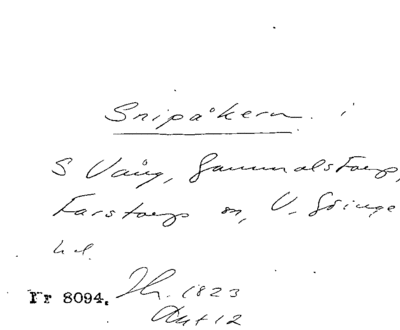 Snipåkern i
S Vång, Gammalstorp,
Farstorp sn, V. Göinge
hd.
Fr 8094. Jh. 1823
Akt 12